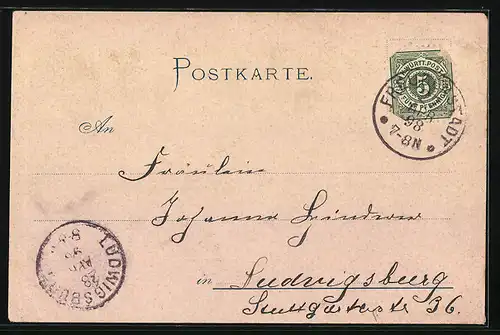 POSTKARTE.
K. WÜRTT. POST
5
FÜNF PFENNIG
98
7-8N
An
Fräulein
Johanna
in Ludwigsburg
Stuttgarterstr 36.
LUDWIGSBURG
28
APR
98